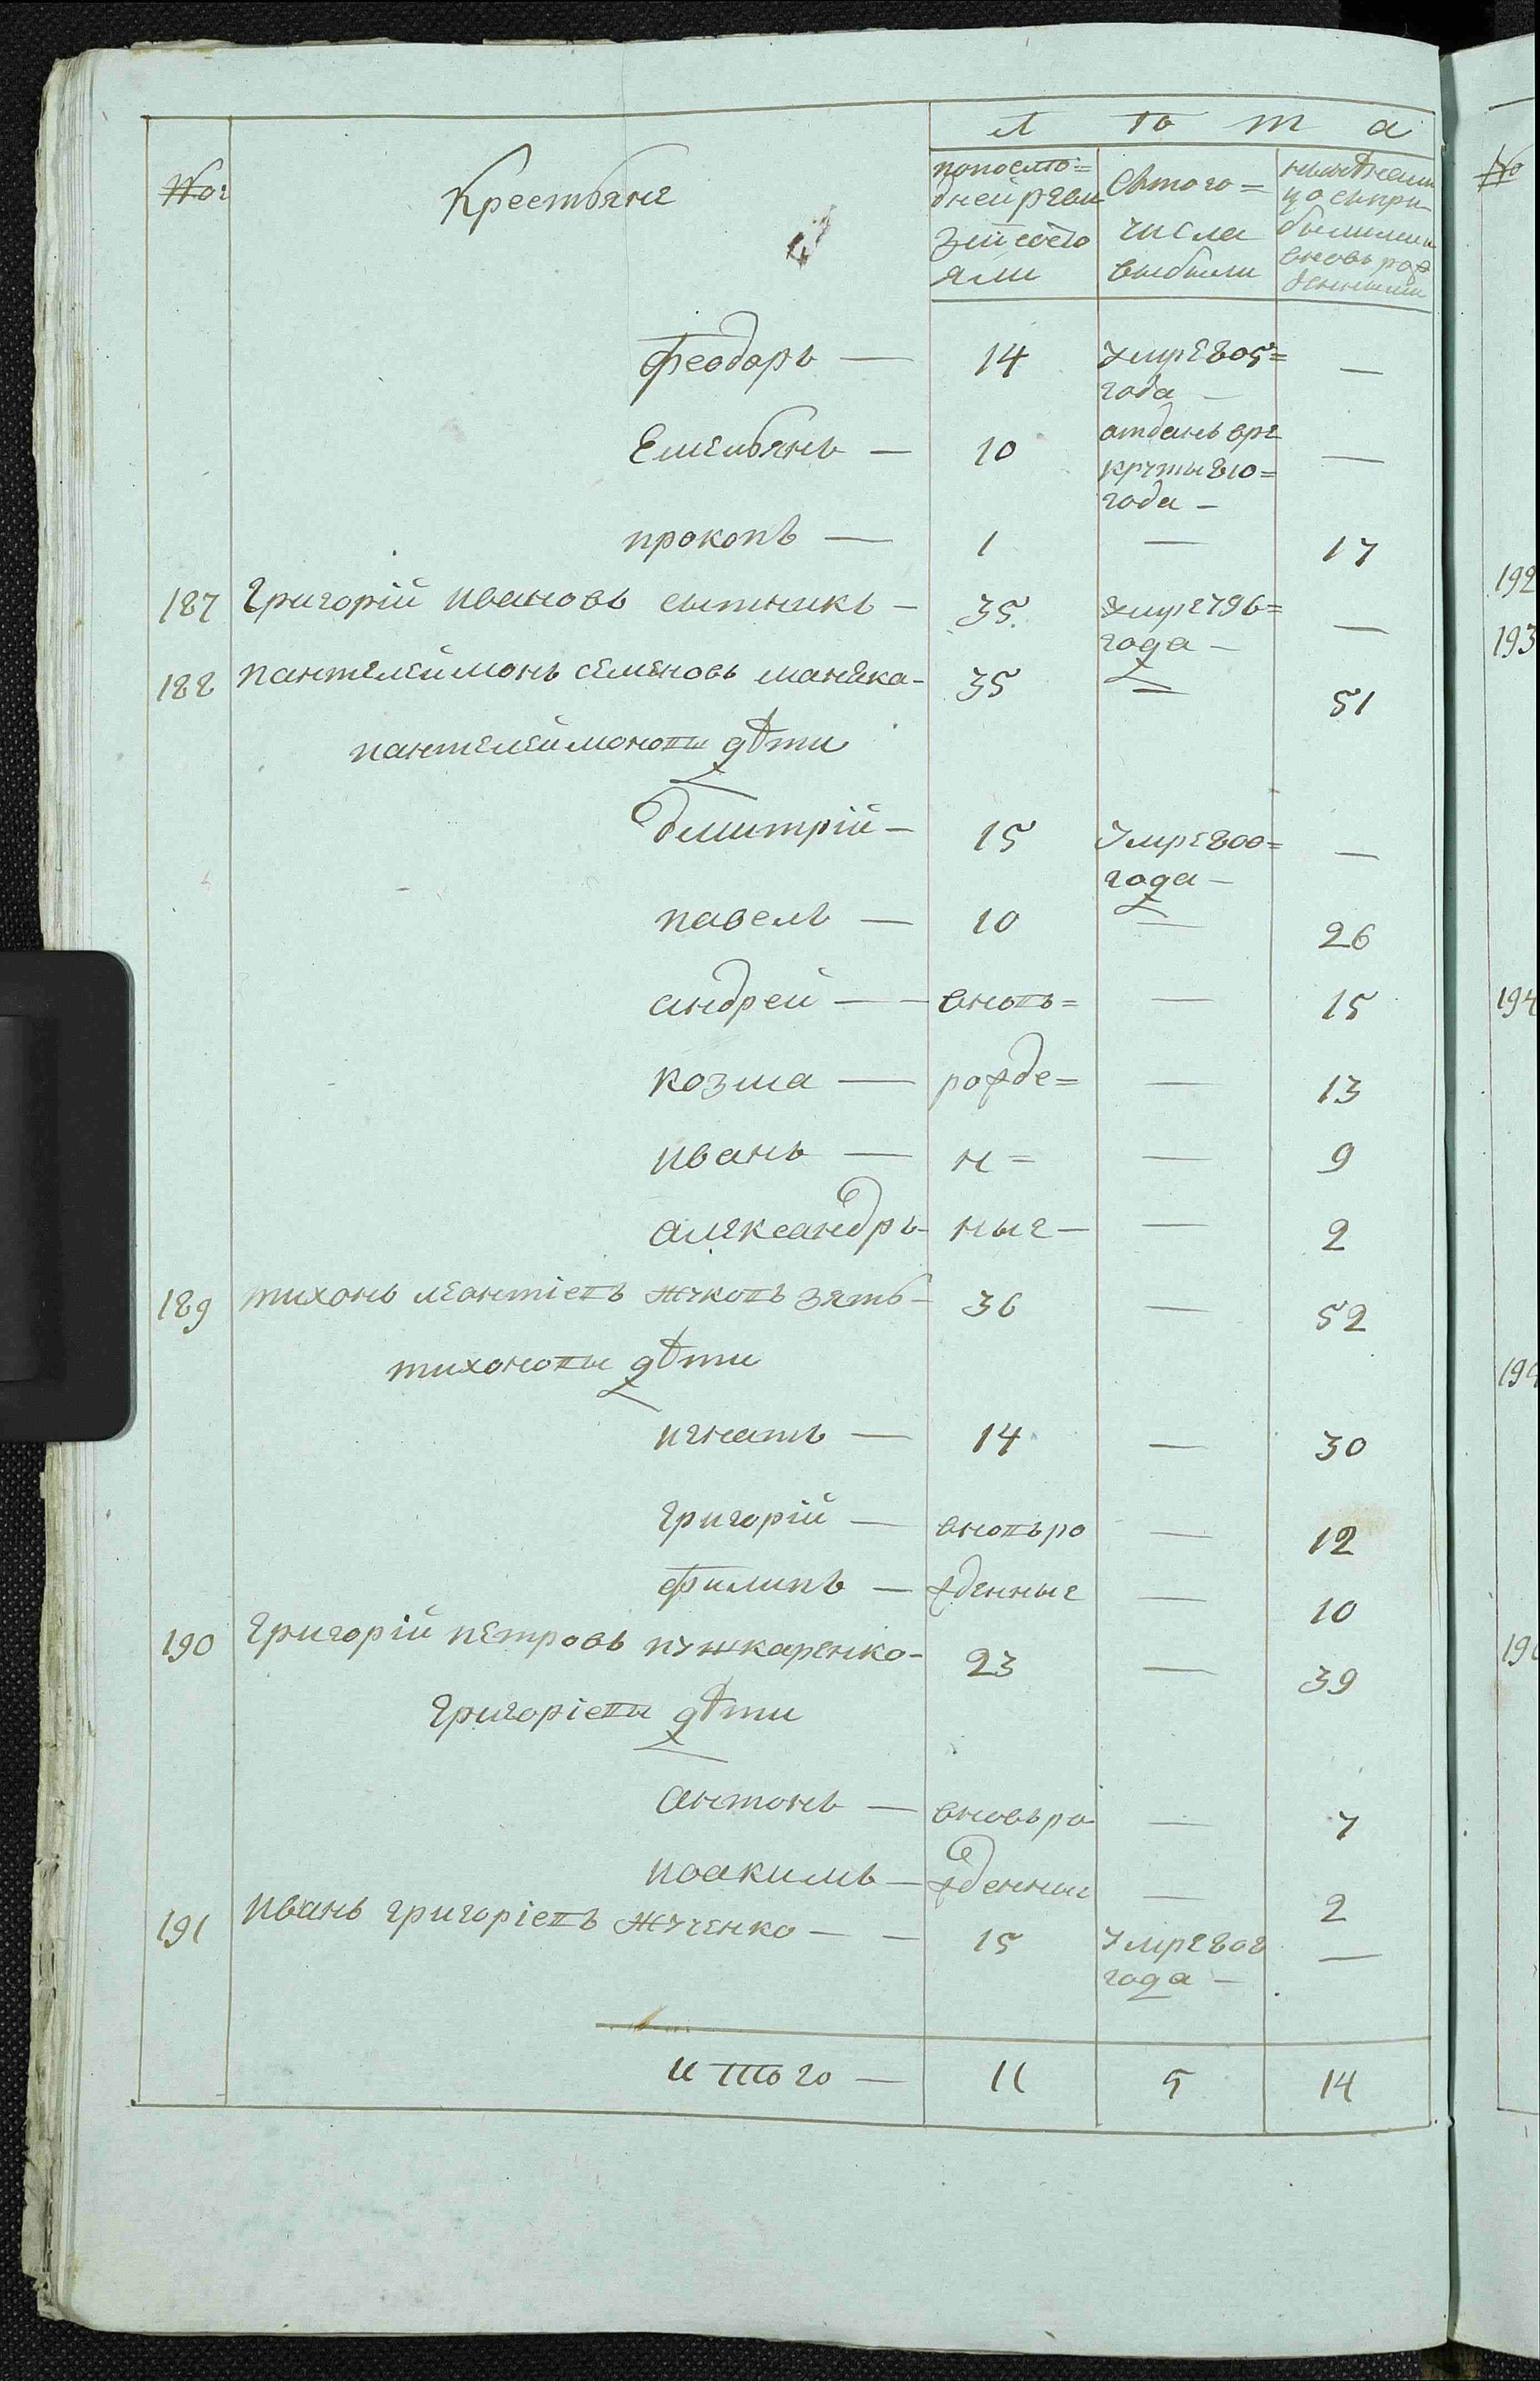 Л ѣ т а
№ Крестьяне
попослѣ=
дней реви
зіи состо
яли
Стого=
числа
выбыли
ныне налицо сприбылыми и вновь рожденными
Феодоръ — 14 умре 805= года — —
Емельянъ — 10 отданъ вре крути 810= года — —
прокопъ — 1 — 17
187 Григорій Ивановъ сытникъ — 35 умре 796= года — —
188 пантелеймонъ семеновъ маняка — 35 — 51
пантелеймоновы дѣти
дмитрій — 15 умре 800= года — —
павелъ — 10 — 26
андрей — вновь= — 15
козма — рожде= — 13
иванъ — н= — 9
александръ — ные — — 2
189 тихонъ леонтіевъ жуковъ зять — 36 — 52
тихоновы дѣти
игнатъ — 14 — 30
григорій — вновьро — 12
филипъ — жденные — 10
190 Григорій петровъ пушкаренко — 23 — 39
Григоріевы дѣти
антонъ — вновьро — 7
иоакимъ — жденныи — 2
191 Иванъ григоріевъ жученко — — 15 умре 808 года — —
итого — 11 5 14
№
192
193
194